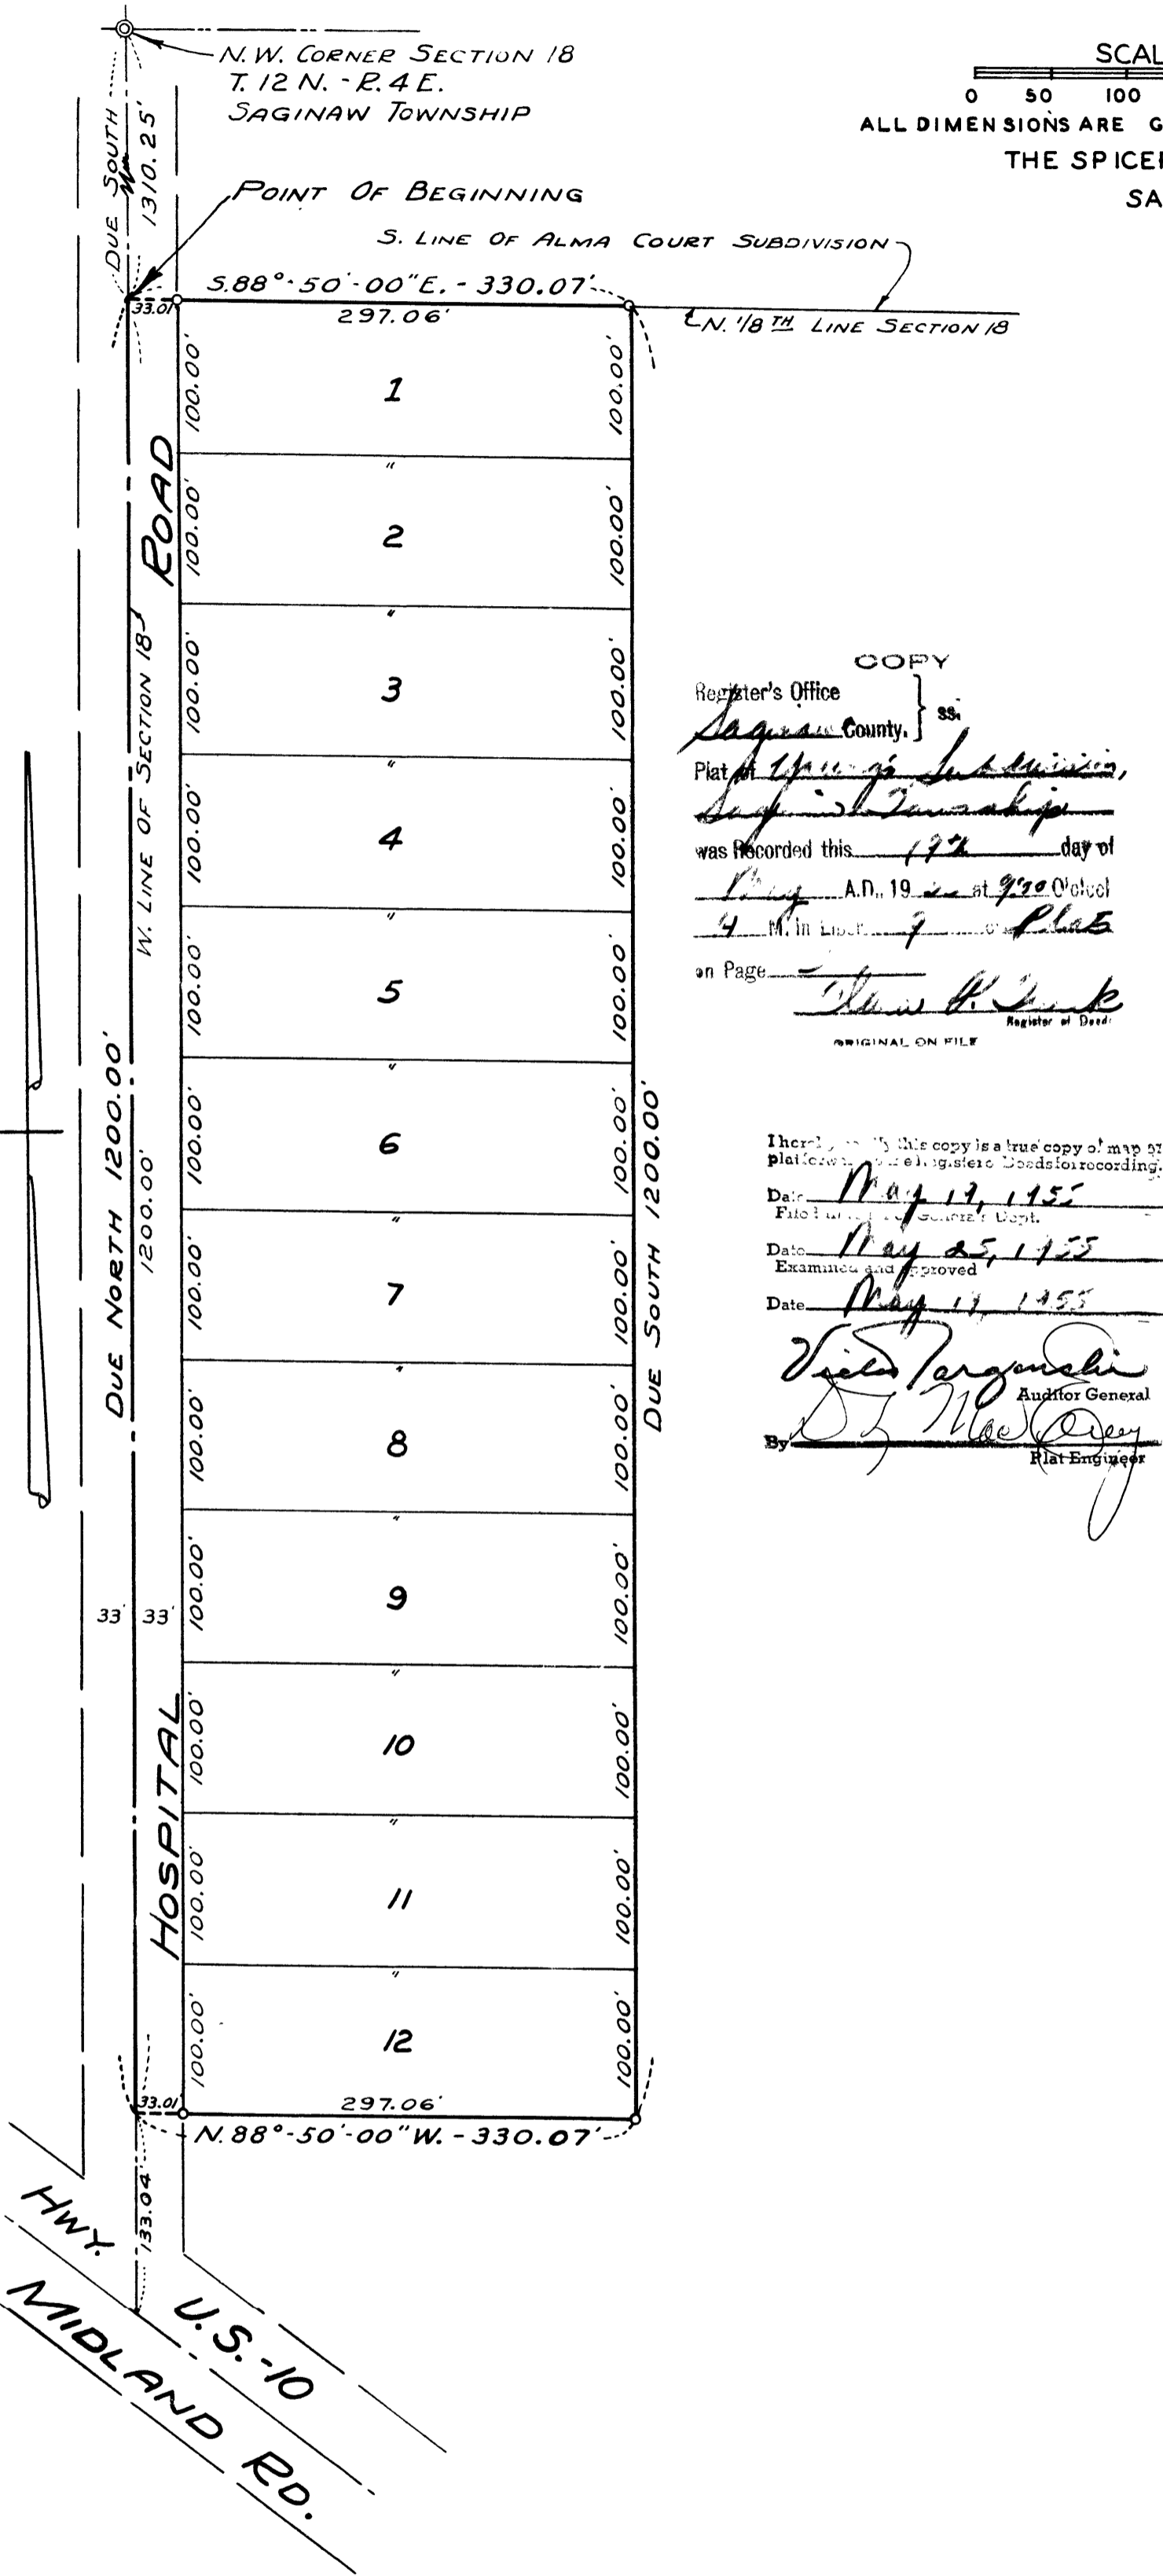 N.W. CORNER SECTION 18
T. 12 N. - R. 4 E.
SAGINAW TOWNSHIP
SCAL
0 50 100
ALL DIMENSIONS ARE G
THE SPICER
SA
DUE SOUTH
1310.25'
POINT OF BEGINNING
S. LINE OF ALMA COURT SUBDIVISION
S.88°-50'-00"E. - 330.07'
33.01'
297.06'
N. 1/8 TH LINE SECTION 18
100.00'
1
100.00'
"
100.00'
2
100.00'
"
100.00'
3
100.00'
"
100.00'
4
100.00'
"
100.00'
5
100.00'
"
100.00'
6
100.00'
"
100.00'
7
100.00'
"
100.00'
8
100.00'
"
100.00'
9
100.00'
"
100.00'
10
100.00'
"
100.00'
11
100.00'
"
100.00'
12
100.00'
HOSPITAL ROAD
W. LINE OF SECTION 18
DUE NORTH 1200.00'
1200.00'
DUE SOUTH 1200.00'
33' 33'
33.01'
297.06'
N. 88°-50'-00" W. - 330.07'
133.04'
HWY. U.S.-10
MIDLAND RD.
COPY
Register's Office
Saginaw County. } ss.
Plat of Young's Subdivision,
Saginaw Township
was Recorded this 19th day of
May A.D., 19 at 9:30 O'clock
M. in Liber 9 of Plats
on Page
Register of Deeds
ORIGINAL ON FILE
I hereby certify this copy is a true copy of map or
plat forwarded to the Registers Deeds for recording.
Date May 19, 1955
Filed in Auditor General's Dept.
Date May 25, 1955
Examined and Approved
Date May 19, 1955
Auditor General
By
Plat Engineer